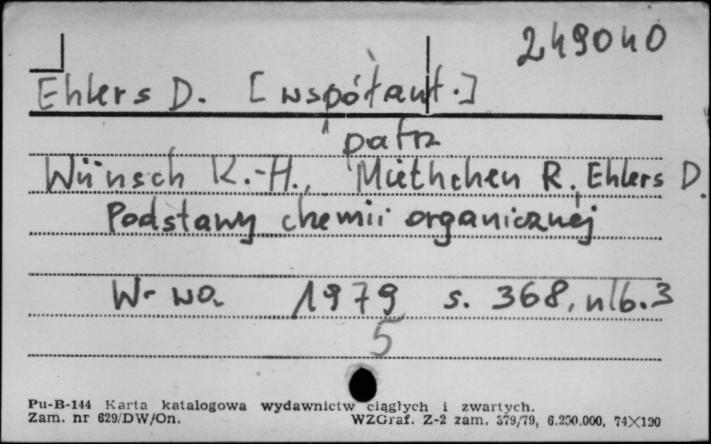 249040
Ehlers D. [współaut.]
patrz
Wünsch K.-H., Miethchen R., Ehlers D.
Podstawy chemii organicznej
W-wa 1979 s. 368, nlb. 3
5
Pu-B-144 Karta katalogowa wydawnictw ciągłych i zwartych.
Zam. nr 629/DW/On. WZGraf. Z-2 zam. 379/79, 6.250.000, 74X120